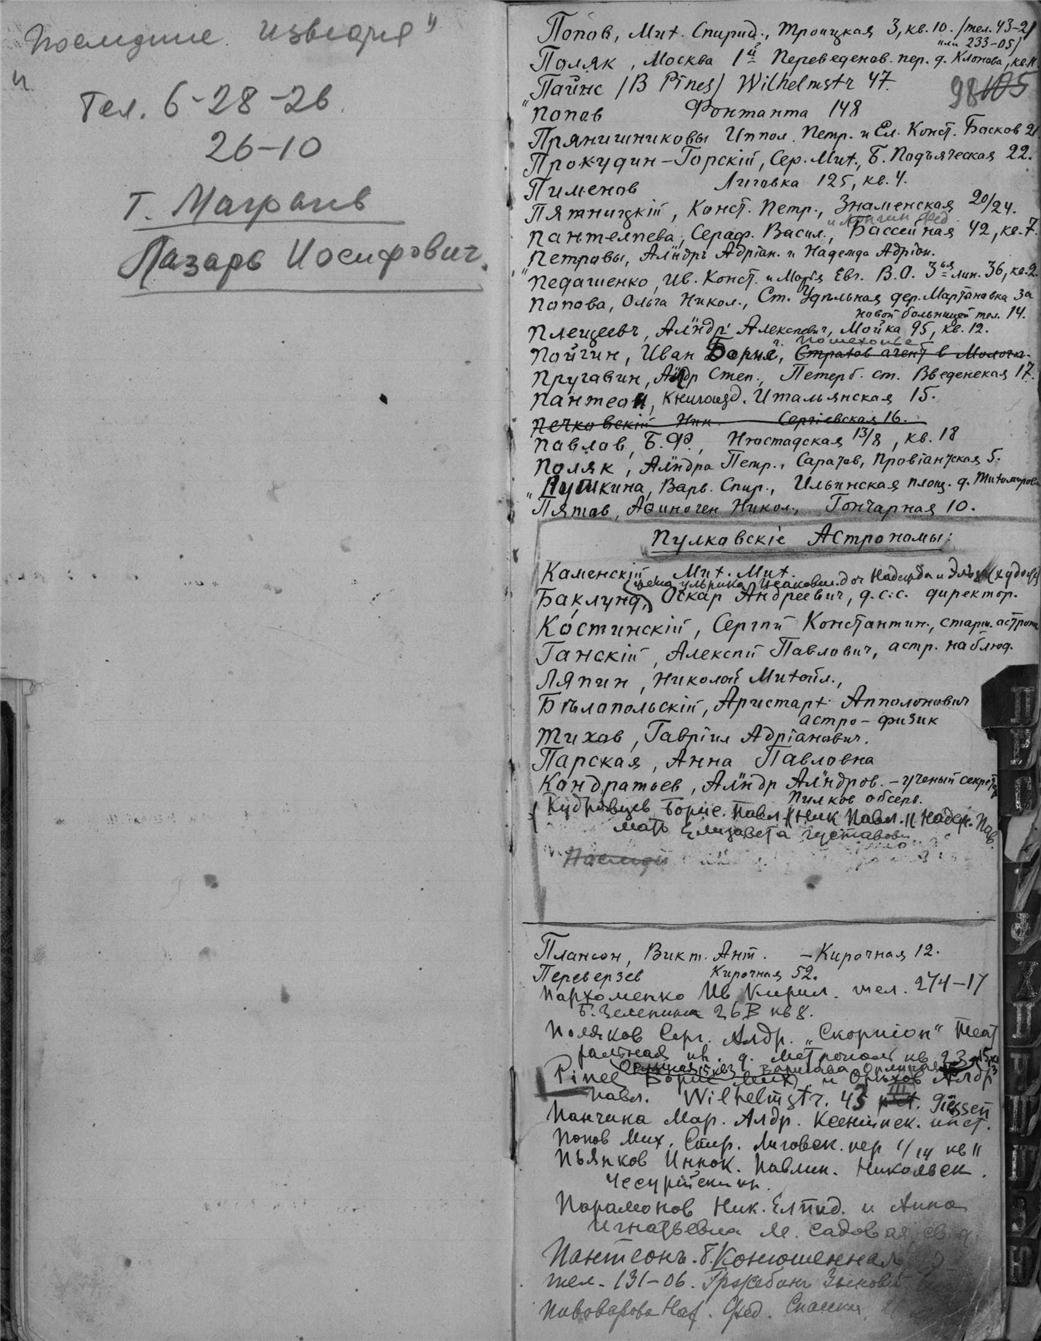 "Последние известия"
Тел. 6-28-26.
26-10
Т. Маграчев
Лазарь Иосифович.
98 105
Попов, Мих. Спирид., Троицкая 3, кв. 10. /тел. 43-21
или 233-05/
Поляк, Москва 1й Переведенов. пер. д. Клонова, кв.
Пайнс /B Pines/ Wilhelmstr 47.
Попов Фонтанка 148
Прянишниковы Иппол. Петр. и Ел. Конст. Басков 21
Прокудин-Горскій, Сер. Мих., Б. Подъяческая 22.
Пименов Лиговка 125, кв. 4.
Пятницкій, Конст. Петр., Знаменская 20/24.
Пантелѣева, Сераф. Васил., Бассейная 42, кв. 7.
Петровы, Ал-ндръ Адріан. и Надежда Адріан.
Педашенко, Ив. Конст. и Марія Евг. В.О. 3ья лин. 36, кв. 2.
Попова, Ольга Никол., Ст. Удѣльная дер. Мартыновка за
новой больницей тел. 14.
Плещеевъ, Ал-ндръ Алексѣевич, Мойка 95, кв. 12.
Пошехонье
Пойгин, Иван Борис., Страхов агент в Молога
Пругавин, Ал-др Степ., Петерб. ст. Введенская 17.
Пантеон, Книгоизд. Итальянская 15.
Печковскій Ник. Сергіевская 16.
Павлов, Б. Ф., Нюстадская 13/8, кв. 18
Поляк, Ал-ндра Петр., Саратов, Провіантская 5.
Пушкина, Варв. Спир., Ильинская площ. д. Тихомирова
Пятов, Афиноген Никол., Гончарная 10.
Пулковскіе Астрономы:
Каменскій Мих. Мих.
жена Ульрика Исаковна доч Надежда и Эльза (худож)
Баклунд, Оскар Андреевич, д.с.с. директор.
Костинскій, Сергѣй Константин., старш. астроном
Ганскій, Алексѣй Павлович, астр. наблюд.
Ляпин, Николай Михайл.,
Бѣлопольскій, Аристарх Апполонович
астро-физик
Тихов, Гавріил Адріанович.
Парская, Анна Павловна
Кондратьев, Ал-ндр Ал-ндров. - ученый секрет
Пулков обсерв.
Кудрявцев Борис. Павл. Ник Павл. Надеж. Пав.
мать Елизавета Густавовн.
Плансон, Викт. Ант. - Кирочная 12.
Переверзев Кирочная 52.
Пархоменко Ив Кирил. тел. 274-17
Б. Зеленина 26В кв 8.
Поляков Серг. Алдр. "Скорпіон" Теат
ральная пл. д. Метрополь кв 23
Pines Борис Мих и Орѣхов Алдр
Павл. Wilhelmstr. 43 Giessen
Панчина Мар. Алдр. Ксенінск. инст.
Попов Мих. Спир. Лиговск. пер 1/14 кв 11
Пьянков Иннок. Павлин. Никольск
Уссурійскій.
Парамонов Ник. Елпид. и Анна
Игнатьевна М. Садовая
Пантеонъ. Б. Конюшенная
тел. 131-06. Гржебин Зиновій
Пивоварова Над. Фед. Спасская